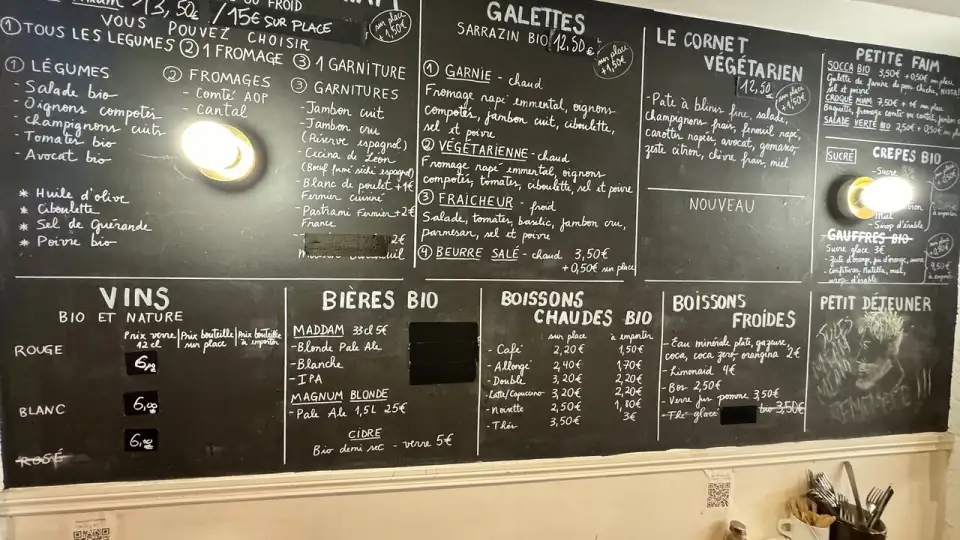 OU FROID
13,50€ / 15€ SUR PLACE
sur place +1,50€
VOUS POUVEZ CHOISIR
① TOUS LES LEGUMES ② 1 FROMAGE ③ 1 GARNITURE
① LÉGUMES
- Salade bio
- Oignons compotés
- champignons cuits
- Tomates bio
- Avocat bio
* Huile d'olive
* Ciboulette
* Sel de Guérande
* Poivre bio
② FROMAGES
- Comté AOP
- Cantal
③ GARNITURES
- Jambon cuit
- Jambon cru
(Réserve espagnol)
- Cecina de Leon
(Bœuf fumé séché espagnol)
- Blanc de poulet +1€
Fermier cuisiné
- Pastrami Fermier +2€
France
2€
GALETTES
SARRAZIN BIO 12,50€
sur place +1,50€
① GARNIE - chaud
Fromage rapé emmental, oignons
compotés, jambon cuit, ciboulette,
sel et poivre
② VÉGÉTARIENNE - chaud
Fromage rapé emmental, oignons
compotés, tomates, ciboulette, sel et poivre
③ FRAÎCHEUR - froid
Salade, tomates, basilic, jambon cru,
parmesan, sel et poivre
④ BEURRE SALÉ - chaud 3,50€
+0,50€ sur place
LE CORNET
VÉGÉTARIEN
12,50
sur place +1,50€
- Pate à blinis fine, salade,
champignons frais, fenouil rapé,
carottes rapées, avocat, gomasio,
zeste citron, chèvre frais, miel
NOUVEAU
PETITE FAIM
SOCCA BIO 3,50€ +0,50€ sur place
Galette de farine de pois chiche,
sel et poivre
CROQUE MIAM 7,50€ + 1€ sur place
Baguette, fromage comté ou cantal, jambon
SALADE VERTE BIO 2,50€ +0,50€ sur place
SUCRÉ CREPES BIO
- Sucre
Miel
- Sirop d'érable
à emporter
GAUFFRES BIO
Sucre glace 3€
- Zeste d'orange, jus d'orange, sucre
- Confitures, Nutella, miel,
sirop d'érable
VINS
BIO ET NATURE
Prix verre 12 cl | Prix bouteille sur place | Prix bouteille à emporter
ROUGE
BLANC 6,00
6,00
ROSÉ
BIÈRES BIO
MADDAM 33cl 5€
- Blonde Pale Ale
- Blanche
- IPA
MAGNUM BLONDE
- Pale Ale 1,5L 25€
CIDRE
Bio demi sec - verre 5€
BOISSONS
CHAUDES BIO
sur place à emporter
- Café 2,20€ 1,50€
- Allongé 2,40€ 1,70€
- Double 3,20€ 2,20€
- Latte/Capucino 3,20€ 2,20€
- Noisette 2,50€ 1,80€
- Thés 3,50€ 3€
BOISSONS
FROIDES
- Eau minérale plate, gazeuse,
coca, coca zero, orangina 2€
- Limonaid 4€
- Bos 2,50€
- Verre jus pomme 3,50€
- Thé glacé bio 3,50€
PETIT DÉJEUNER